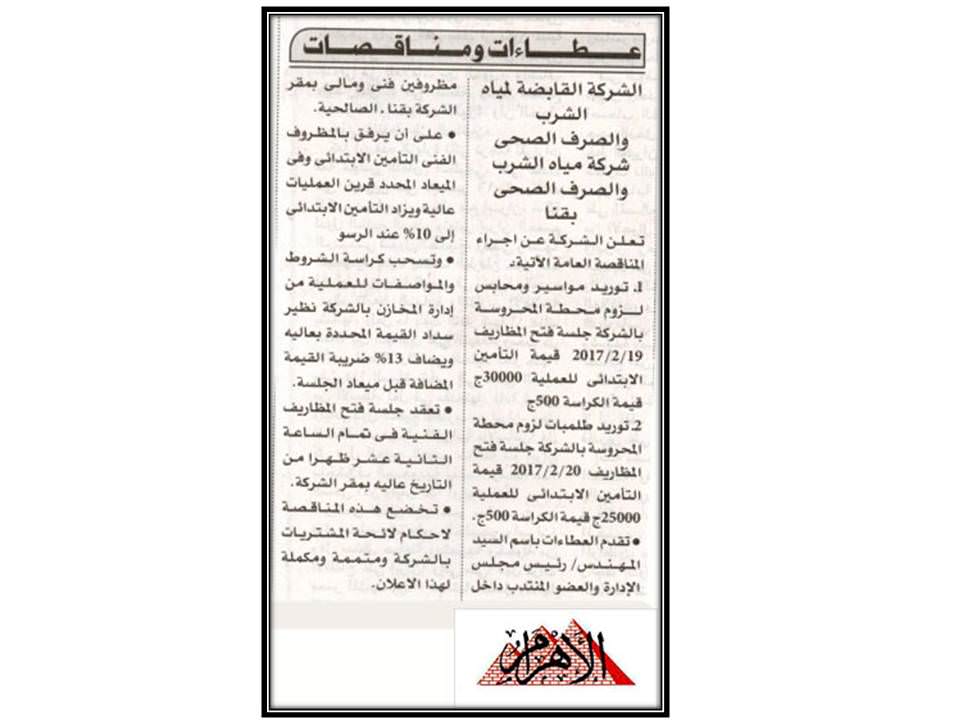 عطاءات ومناقصات
الشركة القابضة لمياه
الشرب
والصرف الصحى
شركة مياه الشرب
والصرف الصحى
بقنا
تعلن الشركة عن اجراء
المناقصة العامة الآتية.
1. توريد مواسير ومحابس
لزوم محطة المحروسة
بالشركة جلسة فتح المظاريف
2017/2/19 قيمة التأمين
الابتدائى للعملية 30000ج
قيمة الكراسة 500ج
2. توريد طلمبات لزوم محطة
المحروسة بالشركة جلسة فتح
المظاريف 2017/2/20 قيمة
التأمين الابتدائى للعملية
25000ج قيمة الكراسة 500ج.
• تقدم العطاءات باسم السيد
المهندس/ رئيس مجلس
الإدارة والعضو المنتدب داخل
مظروفين فنى ومالى بمقر
الشركة بقنا . الصالحية.
• على أن يرفق بالمظروف
الفنى التأمين الابتدائى وفى
الميعاد المحدد قرين العمليات
عالية ويزاد التأمين الابتدائى
إلى 10% عند الرسو
• وتسحب كراسة الشروط
والمواصفات للعملية من
إدارة المخازن بالشركة نظير
سداد القيمة المحددة بعاليه
ويضاف 13% ضريبة القيمة
المضافة قبل ميعاد الجلسة.
• تعقد جلسة فتح المظاريف
الفنية فى تمام الساعة
الثانية عشر ظهرا من
التاريخ عاليه بمقر الشركة.
• تخضع هذه المناقصة
لاحكام لائحة المشتريات
بالشركة ومتممة ومكملة
لهذا الاعلان.
الأهرام